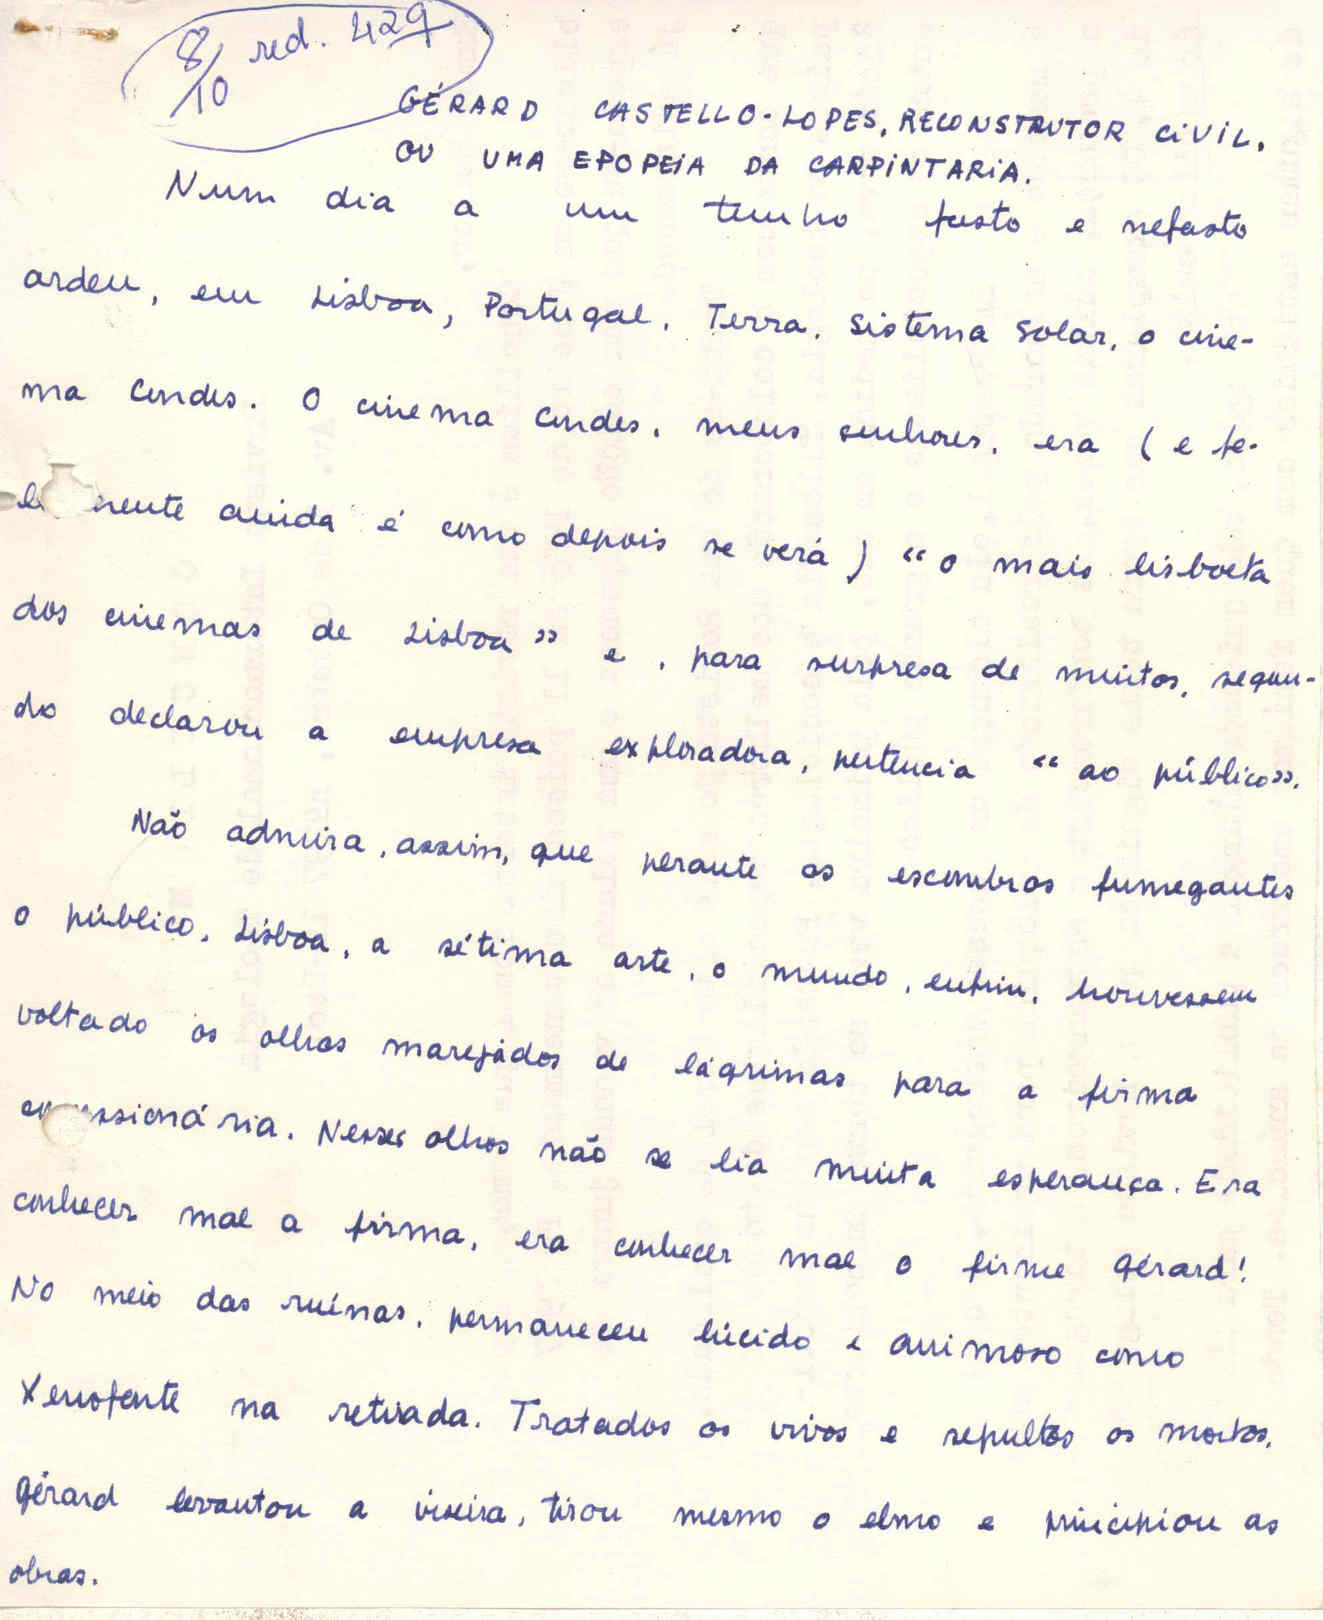 8/10 red. 429
GÉRARD CASTELLO-LOPES, RECONSTRUTOR CIVIL,
OU UMA EPOPEIA DA CARPINTARIA.
Num dia a um tempo fasto e nefasto
ardeu, em Lisboa, Portugal, Terra, Sistema Solar, o cine-
ma Condes. O cinema Condes, meus senhores, era (e fe-
lizmente ainda é como depois se verá) "o mais lisboeta
dos cinemas de Lisboa" e, para surpresa de muitos, segun-
do declarou a empresa exploradora, pertencia "ao público".
Não admira, assim, que perante os escombros fumegantes
o público, Lisboa, a sétima arte, o mundo, enfim, houvessem
voltado os olhos marejados de lágrimas para a firma
concessionária. Nesses olhos não se lia muita esperança. Era
conhecer mal a firma, era conhecer mal o firme Gérard!
No meio das ruínas, permaneceu lúcido e animoso como
Xenofonte na retirada. Tratados os vivos e sepultos os mortos,
Gérard levantou a viseira, tirou mesmo o elmo e principiou as
obras.